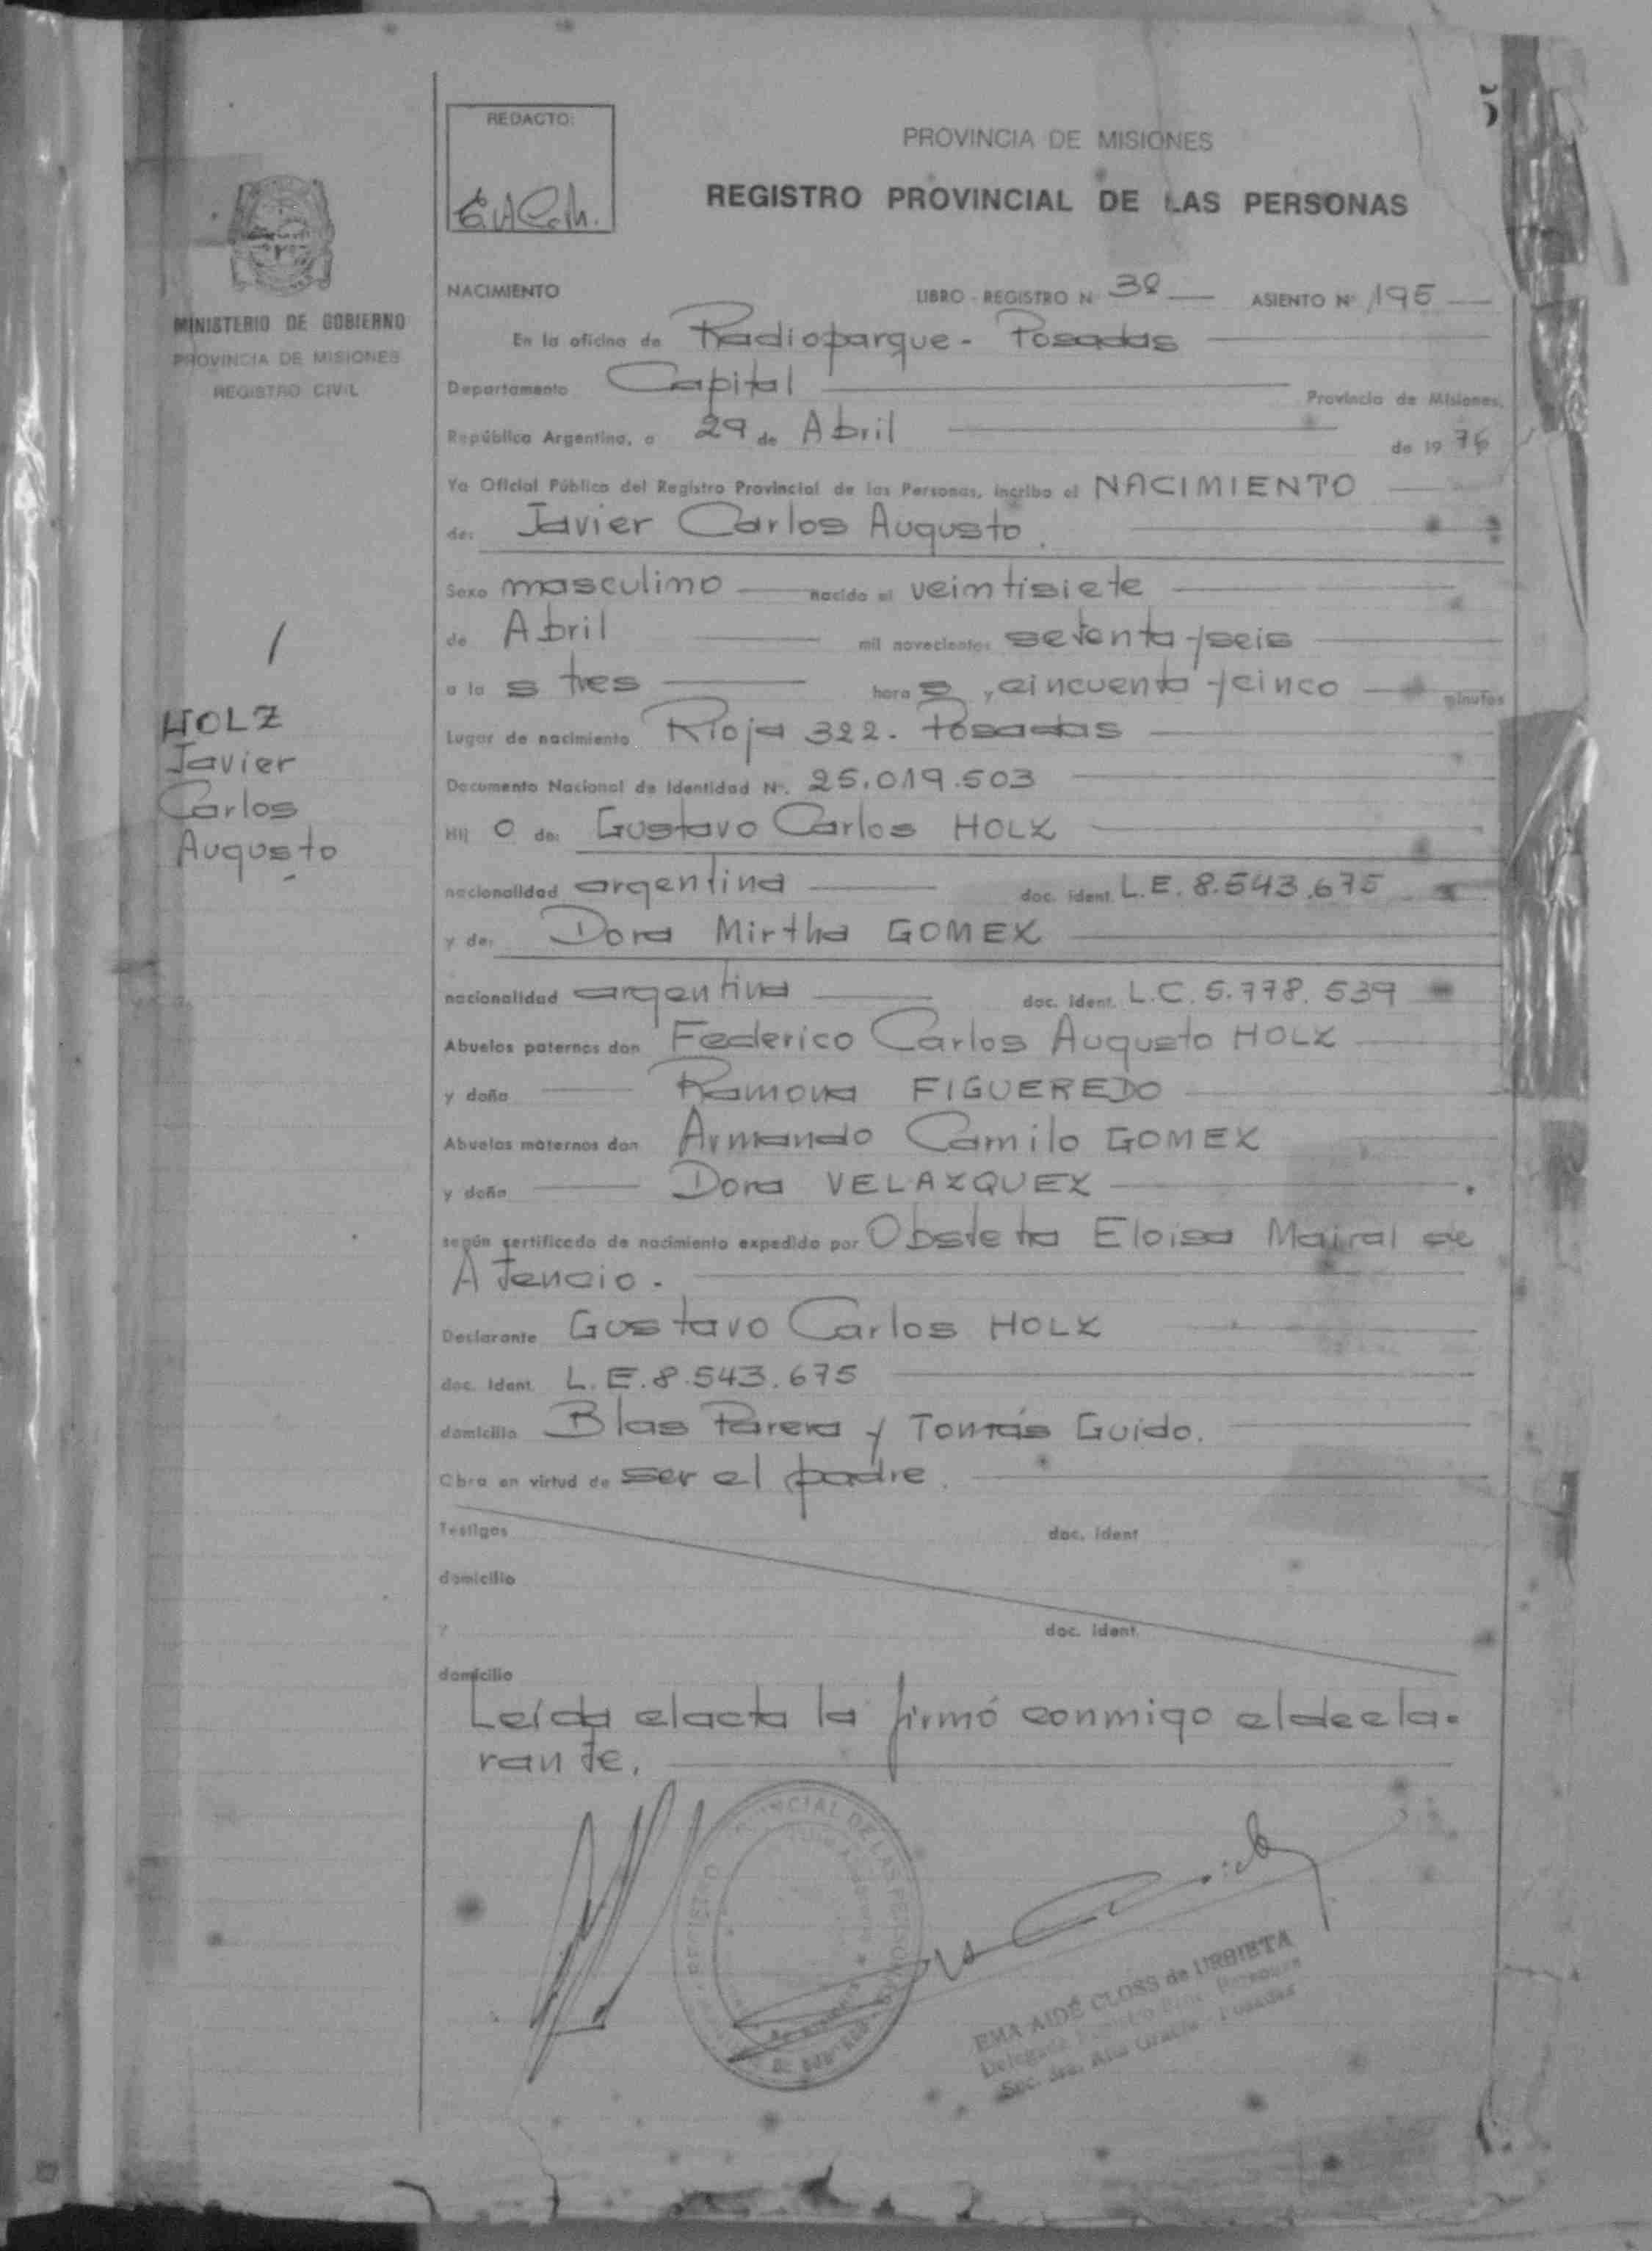 5
REDACTO:
PROVINCIA DE MISIONES
REGISTRO PROVINCIAL DE LAS PERSONAS
NACIMIENTO LIBRO - REGISTRO N° 3º ASIENTO N° 195
MINISTERIO DE GOBIERNO
PROVINCIA DE MISIONES
REGISTRO CIVIL
En la oficina de Radioparque - Posadas
Departamento Capital Provincia de Misiones,
República Argentina, a 29 de Abril de 19 76
Yo Oficial Público del Registro Provincial de las Personas, incribo el NACIMIENTO
de: Javier Carlos Augusto.
Sexo masculino nacido el veintisiete
de Abril mil novecientos setenta y seis
a la s tres hora s y cincuenta y cinco minutos
Lugar de nacimiento Rioja 322. Posadas
Documento Nacional de Identidad N°. 25.019.503
Hij o de: Gustavo Carlos HOLZ
nacionalidad argentina doc. ident. L.E. 8.543.675
y de: Dora Mirtha GOMEZ
nacionalidad argentina doc. ident. L.C. 5.778.539
Abuelos paternos don Federico Carlos Augusto HOLZ
y doña Ramona FIGUEREDO
Abuelos maternos don Armando Camilo GOMEZ
y doña Dora VELAZQUEZ
según certificado de nacimiento expedido por Obsteta Eloisa Mairal de
Atencio.
Declarante Gustavo Carlos HOLZ
doc. ident. L.E. 8.543.675
domicilio Blas Parera y Tomás Guido.
Obra en virtud de ser el padre.
Testigos doc. ident
domicilio
y doc. ident.
domicilio
Leída el acta la firmó conmigo el decla-
rante.
/
HOLZ
Javier
Carlos
Augusto
EMA AIDÉ CLOSS de URBIETA